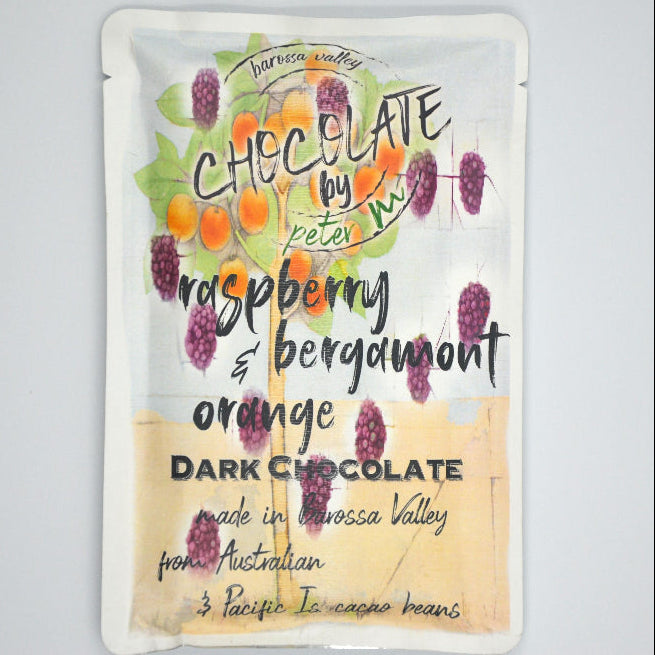 barossa valley
CHOCOLATE
by
peter m
raspberry
& bergamont
orange
DARK CHOCOLATE
made in Barossa Valley
from Australian
& Pacific Is cacao beans